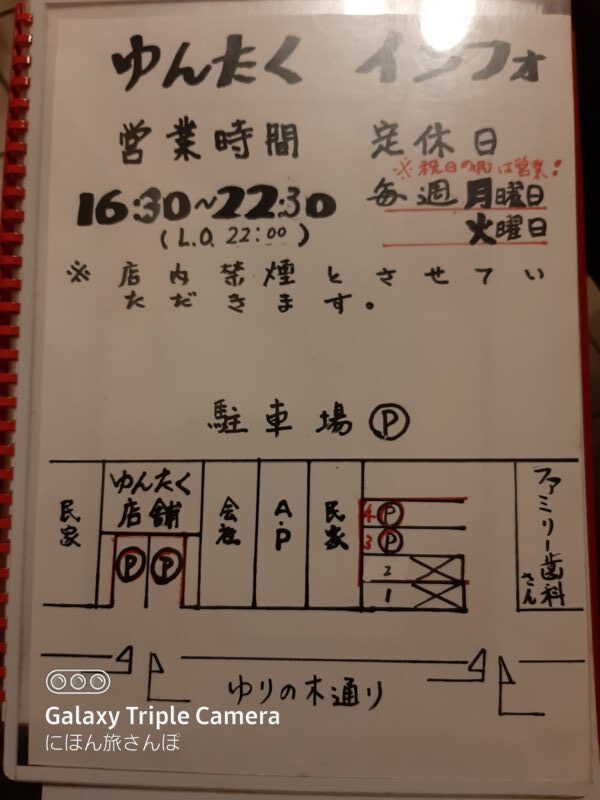 ゆんたく インフォ
営業時間 定休日
※祝日の時は営業!
16:30~22:30 毎週月曜日
(L.O. 22:00) 火曜日
※ 店内禁煙とさせてい
ただきます。
駐車場 Ⓟ
民家
ゆんたく
店舗
Ⓟ Ⓟ
会社
A・P
民家
4 Ⓟ
3 Ⓟ
2
1
ファミリー歯科
さん
ゆりの木通り
Galaxy Triple Camera
にほん旅さんぽ